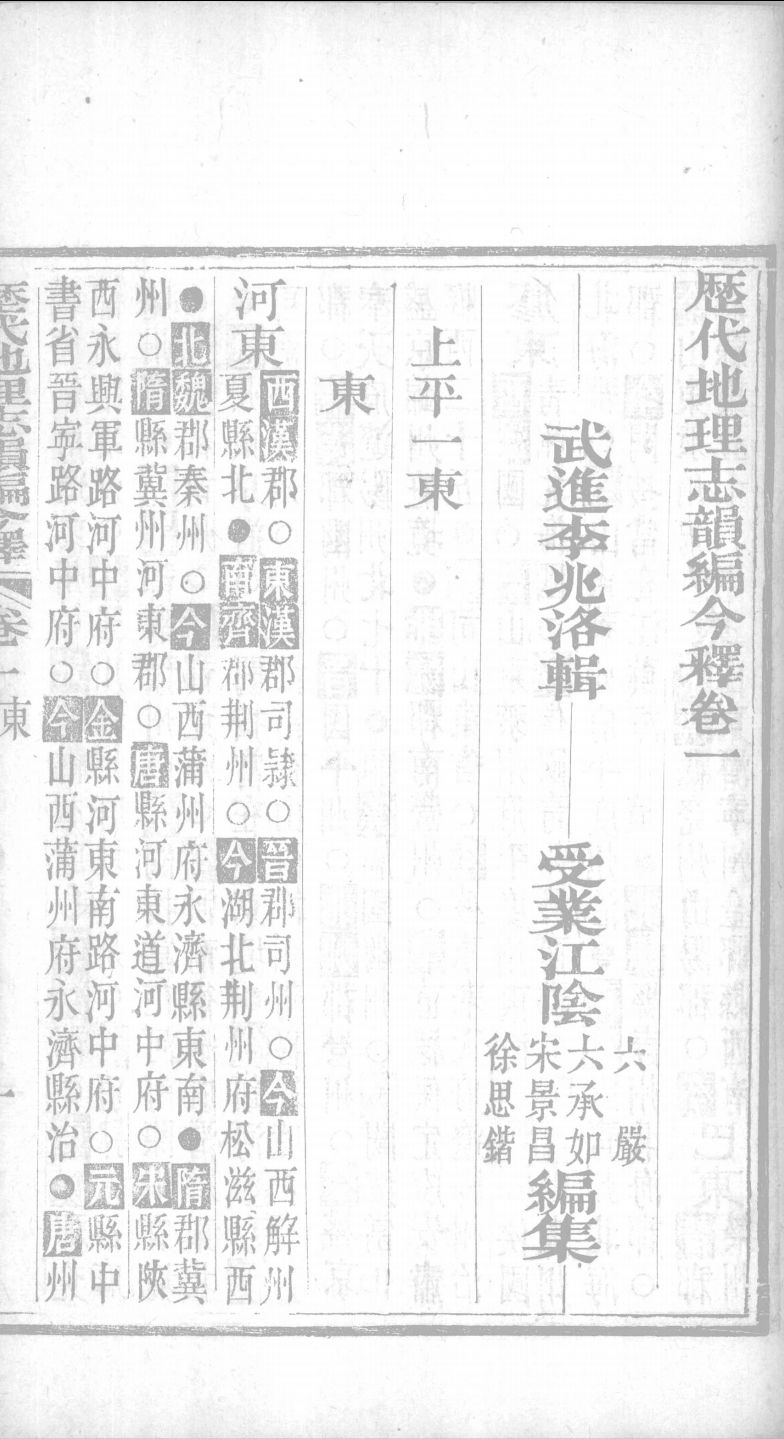 歷代地理志韻編今釋卷一
武進李兆洛輯
受業江陰
六嚴
六承如
宋景昌
徐思鍇
編集
上平一東
東
河東
西漢郡○東漢郡司隷○晉郡司州○今山西解州
夏縣北●南齊郡荆州○今湖北荆州府松滋縣西
●北魏郡秦州○今山西蒲州府永濟縣東南●隋郡冀
州○隋縣冀州河東郡○唐縣河東道河中府○宋縣陜
西永興軍路河中府○金縣河東南路河中府○元縣中
書省晉寧路河中府○今山西蒲州府永濟縣治●唐州
歷代地理志韻編今釋 卷一東
一